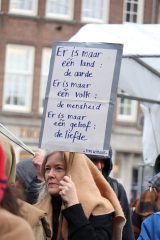 Er is maar
één land:
de aarde
Er is maar
één volk:
de mensheid
Er is maar
één geloof:
de liefde